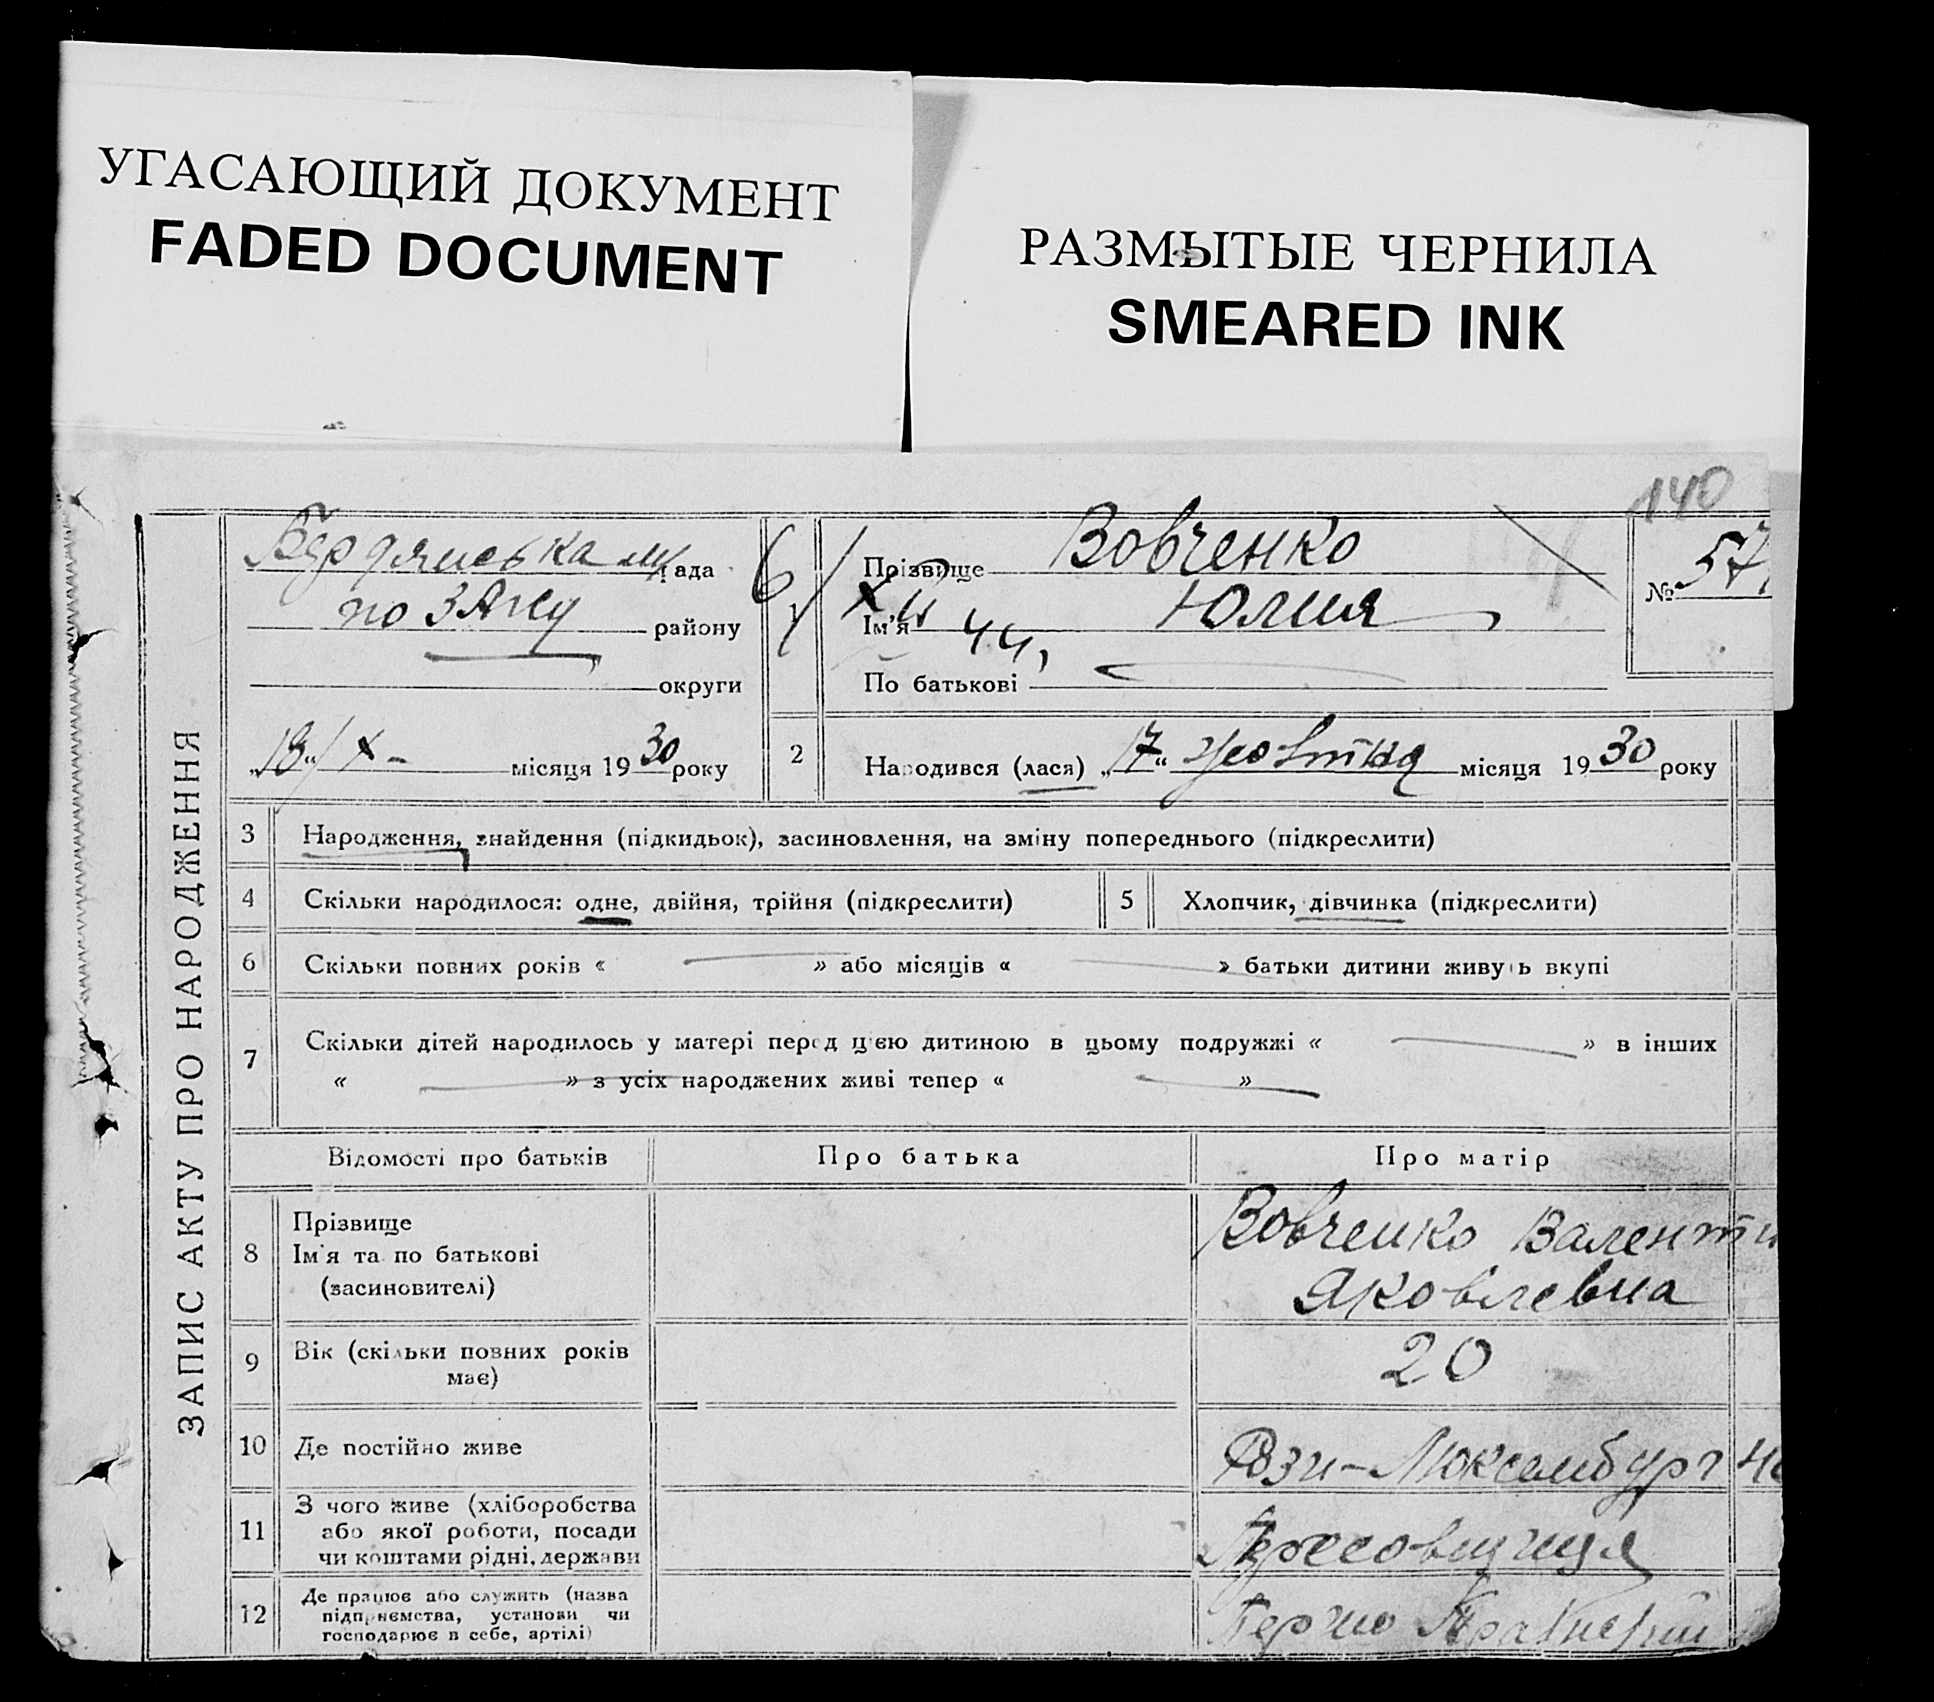 УГАСАЮЩИЙ ДОКУМЕНТ
FADED DOCUMENT
РАЗМЫТЫЕ ЧЕРНИЛА
SMEARED INK
140
ЗАПИС АКТУ ПРО НАРОДЖЕННЯ
Бердянська м/рада
по ЗАГСу району
округи
„18“/X - місяця 1930 року
Прізвище Вовченко
Ім'я Юлия
По батькові
№ 57
2 Народився (лася) „17“ жовтня місяця 1930 року
3 Народження, знайдення (підкидьок), засиновлення, на зміну попереднього (підкреслити)
4 Скільки народилося: одне, двійня, трійня (підкреслити)
5 Хлопчик, дівчинка (підкреслити)
6 Скільки повних років « » або місяців « » батьки дитини живуть вкупі
7 Скільки дітей народилось у матері перед цією дитиною в цьому подружжі « » в інших
« » з усіх народжених живі тепер « »
Відомості про батьків Про батька Про матір
8 Прізвище
Ім'я та по батькові
(засиновителі)
Вовченко Валенти
Яковлевна
9 Вік (скільки повних років
має)
20
10 Де постійно живе
Рози-Люксембург
11 З чого живе (хліборобства
або якої роботи, посади
чи коштами рідні, держави
12 Де працює або служить (назва
підприємства, установи чи
господарює в себе, артілі)